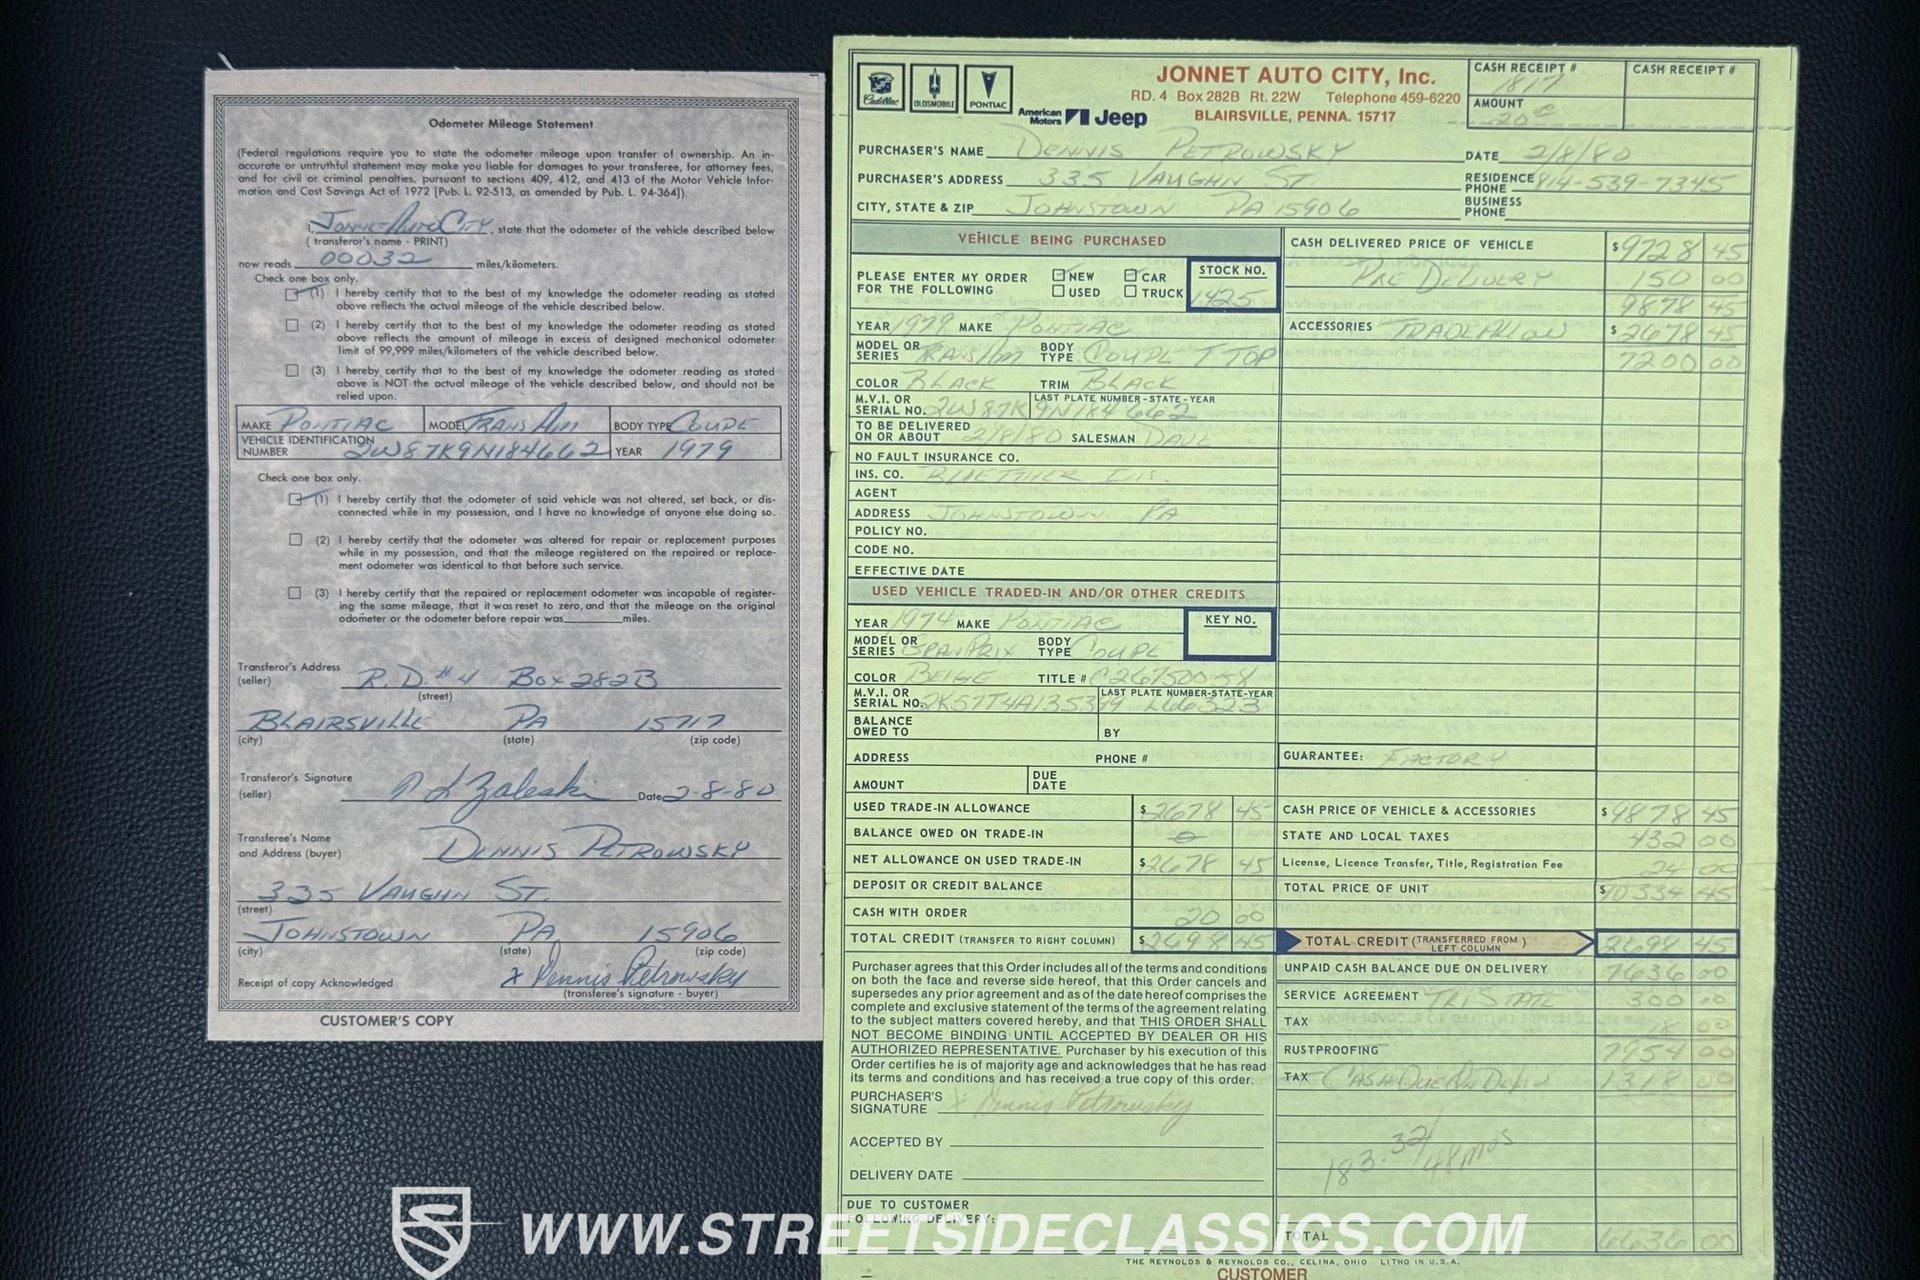 Odometer Mileage Statement
(Federal regulations require you to state the odometer mileage upon transfer of ownership. An in-
accurate or untruthful statement may make you liable for damages to your transferee, for attorney fees,
and for civil or criminal penalties, pursuant to sections 409, 412, and 413 of the Motor Vehicle Infor-
mation and Cost Savings Act of 1972 [Pub. L. 92-513, as amended by Pub. L. 94-364]).
I, Jonnet Auto City, state that the odometer of the vehicle described below
(transferor's name - PRINT)
now reads 00032 miles/kilometers.
Check one box only.
(1) I hereby certify that to the best of my knowledge the odometer reading as stated
above reflects the actual mileage of the vehicle described below.
(2) I hereby certify that to the best of my knowledge the odometer reading as stated
above reflects the amount of mileage in excess of designed mechanical odometer
limit of 99,999 miles/kilometers of the vehicle described below.
(3) I hereby certify that to the best of my knowledge the odometer reading as stated
above is NOT the actual mileage of the vehicle described below, and should not be
relied upon.
MAKE Pontiac MODEL Trans Am BODY TYPE Coupe
VEHICLE IDENTIFICATION
NUMBER 2W87K9N184662 YEAR 1979
Check one box only.
(1) I hereby certify that the odometer of said vehicle was not altered, set back, or dis-
connected while in my possession, and I have no knowledge of anyone else doing so.
(2) I hereby certify that the odometer was altered for repair or replacement purposes
while in my possession, and that the mileage registered on the repaired or replace-
ment odometer was identical to that before such service.
(3) I hereby certify that the repaired or replacement odometer was incapable of register-
ing the same mileage, that it was reset to zero, and that the mileage on the original
odometer or the odometer before repair was miles.
Transferor's Address
(seller) R.D. #4 Box 282B
(street)
Blairsville PA 15717
(city) (state) (zip code)
Transferor's Signature
(seller) Zaleski Date 2-8-80
Transferee's Name
and Address (buyer) Dennis Petrowsky
335 Vaughn St.
(street)
Johnstown PA 15906
(city) (state) (zip code)
Receipt of copy Acknowledged x Dennis Petrowsky
(transferee's signature - buyer)
CUSTOMER'S COPY
Cadillac OLDSMOBILE PONTIAC
American Motors Jeep
JONNET AUTO CITY, Inc.
RD. 4 Box 282B Rt. 22W Telephone 459-6220
BLAIRSVILLE, PENNA. 15717
CASH RECEIPT # 1817 CASH RECEIPT #
AMOUNT 20
PURCHASER'S NAME Dennis Petrowsky DATE 2/8/80
PURCHASER'S ADDRESS 335 Vaughn St RESIDENCE PHONE 814-539-7345
CITY, STATE & ZIP Johnstown PA 15906 BUSINESS PHONE
VEHICLE BEING PURCHASED
PLEASE ENTER MY ORDER FOR THE FOLLOWING NEW USED CAR TRUCK STOCK NO. 1425
YEAR 1979 MAKE Pontiac
MODEL OR SERIES Trans Am BODY TYPE Coupe T Top
COLOR Black TRIM Black
M.V.I. OR SERIAL NO. 2W87K9N184662 LAST PLATE NUMBER-STATE-YEAR
TO BE DELIVERED ON OR ABOUT 2/8/80 SALESMAN
NO FAULT INSURANCE CO.
INS. CO. Ins.
AGENT
ADDRESS Johnstown PA
POLICY NO.
CODE NO.
EFFECTIVE DATE
USED VEHICLE TRADED-IN AND/OR OTHER CREDITS
YEAR 1974 MAKE Pontiac KEY NO.
MODEL OR SERIES Gran Prix BODY TYPE Coupe
COLOR Beige TITLE #
M.V.I. OR SERIAL NO. LAST PLATE NUMBER-STATE-YEAR
BALANCE OWED TO BY
ADDRESS PHONE #
AMOUNT DUE DATE
USED TRADE-IN ALLOWANCE $2678 45
BALANCE OWED ON TRADE-IN 0
NET ALLOWANCE ON USED TRADE-IN $2678 45
DEPOSIT OR CREDIT BALANCE
CASH WITH ORDER 20 00
TOTAL CREDIT (TRANSFER TO RIGHT COLUMN) $2698 45
Purchaser agrees that this Order includes all of the terms and conditions
on both the face and reverse side hereof, that this Order cancels and
supersedes any prior agreement and as of the date hereof comprises the
complete and exclusive statement of the terms of the agreement relating
to the subject matters covered hereby, and that THIS ORDER SHALL
NOT BECOME BINDING UNTIL ACCEPTED BY DEALER OR HIS
AUTHORIZED REPRESENTATIVE. Purchaser by his execution of this
Order certifies he is of majority age and acknowledges that he has read
its terms and conditions and has received a true copy of this order.
PURCHASER'S SIGNATURE x Dennis Petrowsky
ACCEPTED BY
DELIVERY DATE
DUE TO CUSTOMER
FOLLOWING DELIVERY:
CASH DELIVERED PRICE OF VEHICLE $9728 45
Pre Delivery 150 00
9878 45
ACCESSORIES Trade Allow $2678 45
7200 00
GUARANTEE: Factory
CASH PRICE OF VEHICLE & ACCESSORIES $9878 45
STATE AND LOCAL TAXES 432 00
License, Licence Transfer, Title, Registration Fee 24 00
TOTAL PRICE OF UNIT $10334 45
TOTAL CREDIT (TRANSFERRED FROM LEFT COLUMN) 2698 45
UNPAID CASH BALANCE DUE ON DELIVERY 7636 00
SERVICE AGREEMENT Tri State 300 00
TAX 18 00
RUSTPROOFING 7954 00
TAX Cash Due On Del 1318 00
183.32/48 mos
TOTAL 6636 00
THE REYNOLDS & REYNOLDS CO., CELINA, OHIO LITHO IN U.S.A.
CUSTOMER
WWW.STREETSIDECLASSICS.COM